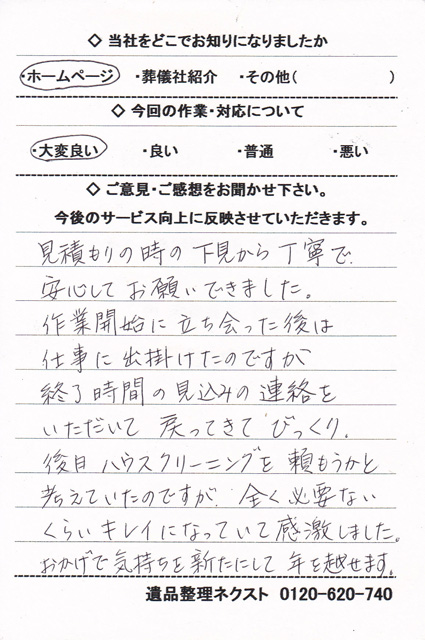 ◇ 当社をどこでお知りになりましたか
・ホームページ ・葬儀社紹介 ・その他( )
◇ 今回の作業・対応について
・大変良い ・良い ・普通 ・悪い
◇ ご意見・ご感想をお聞かせ下さい。
今後のサービス向上に反映させていただきます。
見積もりの時の下見から丁寧で
安心してお願いできました。
作業開始に立ち会った後は
仕事に出掛けたのですが
終了時間の見込みの連絡を
いただいて戻ってきてびっくり。
後日ハウスクリーニングを頼もうかと
考えていたのですが、全く必要ない
くらいキレイになっていて感激しました。
おかげで気持ちを新たにして年を越せます。
遺品整理ネクスト 0120-620-740